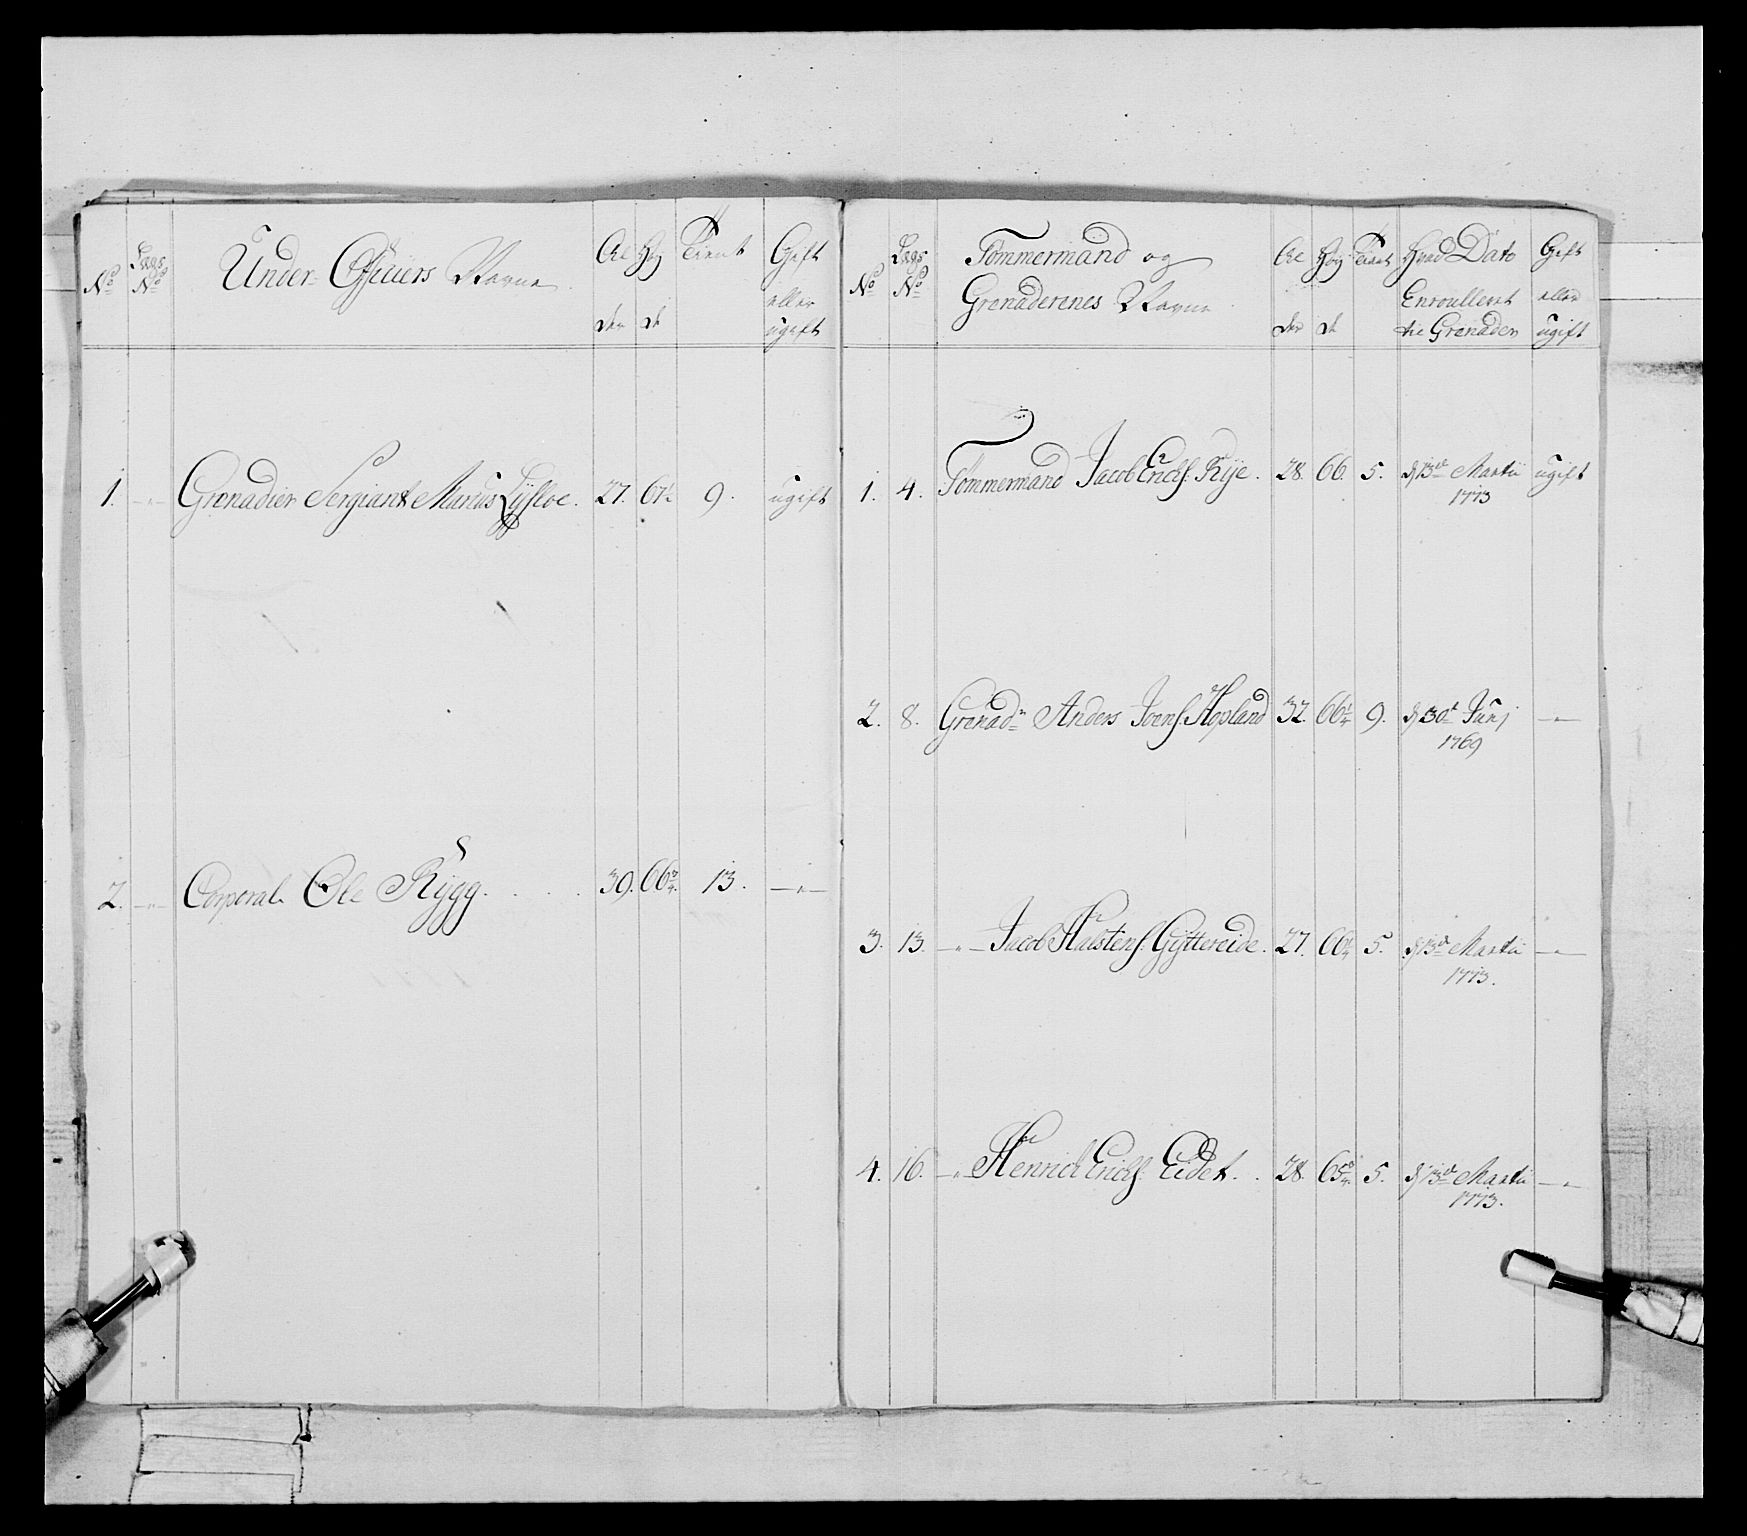 No
Lægs No
Under-Officiers Navne
Alder
Høyde
Tient
Gift eller ugift
1. -"- Grenadier Sergiant Marius Lÿsloe. 27. 67 9. ugift
2. -"- Corporal Ole Rÿgg. . . . 39. 66 13. -"-
No
Lægs No
Tømmermænd og
Grenaderenes Navne
Alder
Høyde
Tient
Hvad Dato
Enroulleret
til Grenader
Gift eller ugift
1. 4. Tømmermand Jacob Erichs. Rÿe. 28. 66. 5. d 13de Martii ugift
1773
2. 8. Grenadr Anders Joens. Hopland 32. 66¼ 9. d 30t Junj -"-
1769
3. 13. -"- Jacob Halstens. Gÿttereide. 27. 66 5. d 13de Martii -"-
1773.
4. 16. -"- Henrich Erichs. Eidet. . 28. 65¾ 5. d 13de Martii -"-
1773.